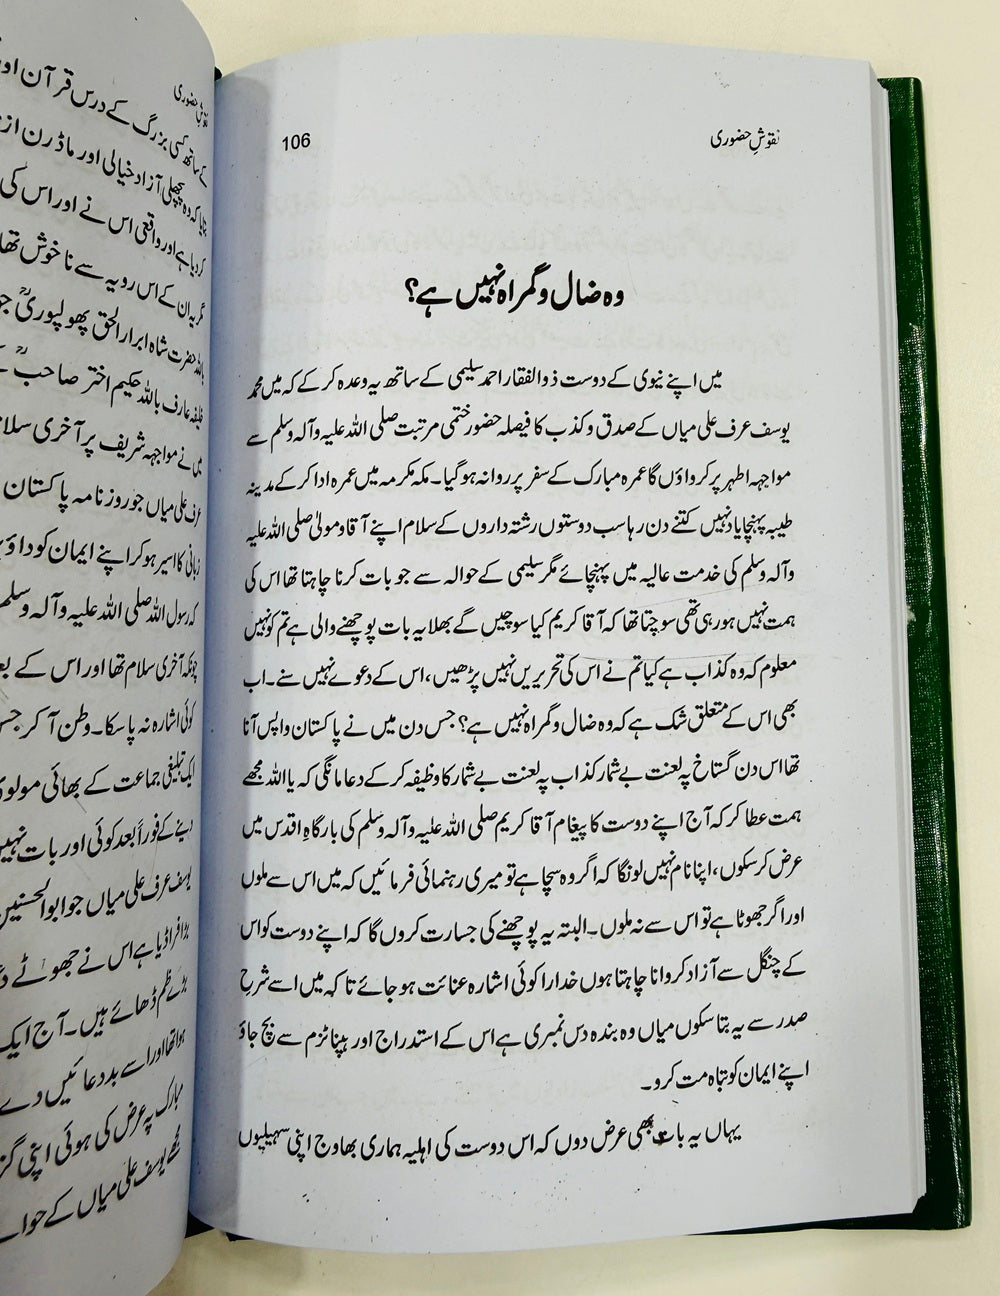 نقوشِ حضوری
106
وہ ضال و گمراہ نہیں ہے؟
میں اپنے نیوی کے دوست ذوالفقار احمد سلیمی کے ساتھ یہ وعدہ کر کے کہ میں محمد
یوسف عرف علی میاں کے صدق و کذب کا فیصلہ حضور ختمی مرتبت صلی اللہ علیہ وآلہ وسلم سے
مواجہہ اطہر پر کرواؤں گا عمرہ مبارک کے سفر پر روانہ ہو گیا۔ مکہ مکرمہ میں عمرہ ادا کر کے مدینہ
طیبہ پہنچا یاد نہیں کتنے دن رہا سب دوستوں رشتہ داروں کے سلام اپنے آقا و مولیٰ صلی اللہ علیہ
وآلہ وسلم کی خدمت عالیہ میں پہنچائے مگر سلیمی کے حوالہ سے جو بات کرنا چاہتا تھا اس کی
ہمت نہیں ہو رہی تھی سوچتا تھا کہ آقا کریم کیا سوچیں گے بھلا یہ بات پوچھنے والی ہے تم کو نہیں
معلوم کہ وہ کذاب ہے کیا تم نے اس کی تحریریں نہیں پڑھیں، اس کے دعوے نہیں سنے۔ اب
بھی اس کے متعلق شک ہے کہ وہ ضال و گمراہ نہیں ہے؟ جس دن میں نے پاکستان واپس آنا
تھا اس دن گستاخ پہ لعنت بے شمار کذاب پہ لعنت بے شمار کا وظیفہ کر کے دعا مانگی کہ یا اللہ مجھے
ہمت عطا کر کہ آج اپنے دوست کا پیغام آقا کریم صلی اللہ علیہ وآلہ وسلم کی بارگاہِ اقدس میں
عرض کر سکوں، اپنا نام نہیں لونگا کہ اگر وہ سچا ہے تو میری رہنمائی فرمائیں کہ میں اس سے ملوں
اور اگر جھوٹا ہے تو اس سے نہ ملوں۔ البتہ یہ پوچھنے کی جسارت کروں گا کہ اپنے دوست کو اس
کے چنگل سے آزاد کروانا چاہتا ہوں خدارا کوئی اشارہ عنائت ہو جائے تا کہ میں اسے شرحِ
صدر سے یہ بتا سکوں میاں وہ بندہ دس نمبری ہے اس کے استدراج اور ہپناٹزم سے بچ جاؤ
اپنے ایمان کو تباہ مت کرو۔
یہاں یہ بات بھی عرض دوں کہ اس دوست کی اہلیہ ہماری بھاوج اپنی سہیلیوں
نقوشِ حضوری
کے ساتھ کسی بزرگ کے درس قرآن اور
بتایا کہ وہ پچھلی آزاد خیالی اور ماڈرن
کر دیا ہے اور واقعی اس نے اور اس کی
کے اس رویہ سے ناخوش تھا
باللہ حضرت شاہ ابرار الحق پھولپوریؒ
خلیفہ عارف باللہ حکیم اختر صاحبؒ
میں نے مواجہہ شریف پر آخری سلام
عرف علی میاں جو روزنامہ پاکستان
زبانی کا اسیر ہو کر اپنے ایمان کو داؤ
کہ رسول اللہ صلی اللہ علیہ وآلہ وسلم
چونکہ آخری سلام تھا اور اس کے بعد
کوئی اشارہ نہ پا سکا۔ وطن آ کر جس
ایک تبلیغی جماعت کے بھائی مولوی
دینے کے فوراً بعد کوئی اور بات نہیں
یوسف عرف علی میاں جو ابوالحسنین
بڑا فراڈیا ہے اس نے جھوٹے
بڑے ظلم ڈھائے ہیں۔ آج ایک
ہوا تھا اور اسے بددعائیں دے
مبارک پہ عرض کی ہوئی اپنی
مجھے یوسف علی میاں کے حوالے